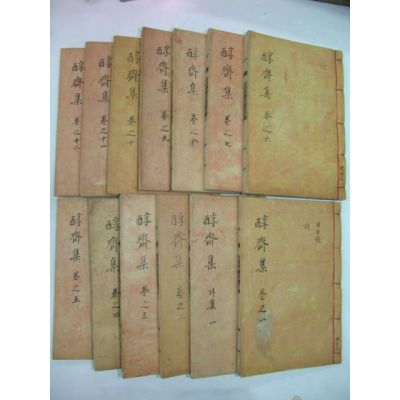 醇齋集 卷之六
醇齋集 卷之七
醇齋集 卷之八
醇齋集 卷之九
醇齋集 卷之十
醇齋集 卷之十一
醇齋集 卷之十二
醇齋集 卷之一
醇齋集 外集 一
醇齋集 卷之二
醇齋集 卷之三
醇齋集 卷之四
醇齋集 卷之五